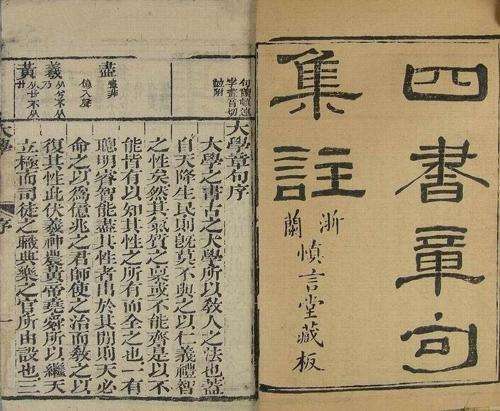 四書章句
集註
浙蘭
慎言堂藏板
盡
羲
黃
大學章句序
大學之書古之大學所以教人之法也蓋
自天降生民則既莫不與之以仁義禮智
之性矣然其氣質之稟或不能齊是以不
能皆有以知其性之所有而全之也一有
聰明睿智能盡其性者出於其閒則天必
命之以爲億兆之君師使之治而教之以
復其性此伏羲神農黃帝堯舜所以繼天
立極而司徒之職典樂之官所由設也三
序